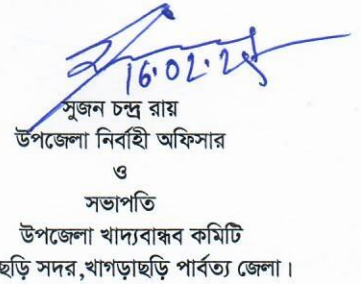 16.02.25
সুজন চন্দ্র রায়
উপজেলা নির্বাহী অফিসার
ও
সভাপতি
উপজেলা খাদ্যবান্ধব কমিটি
ছড়ি সদর,খাগড়াছড়ি পার্বত্য জেলা।